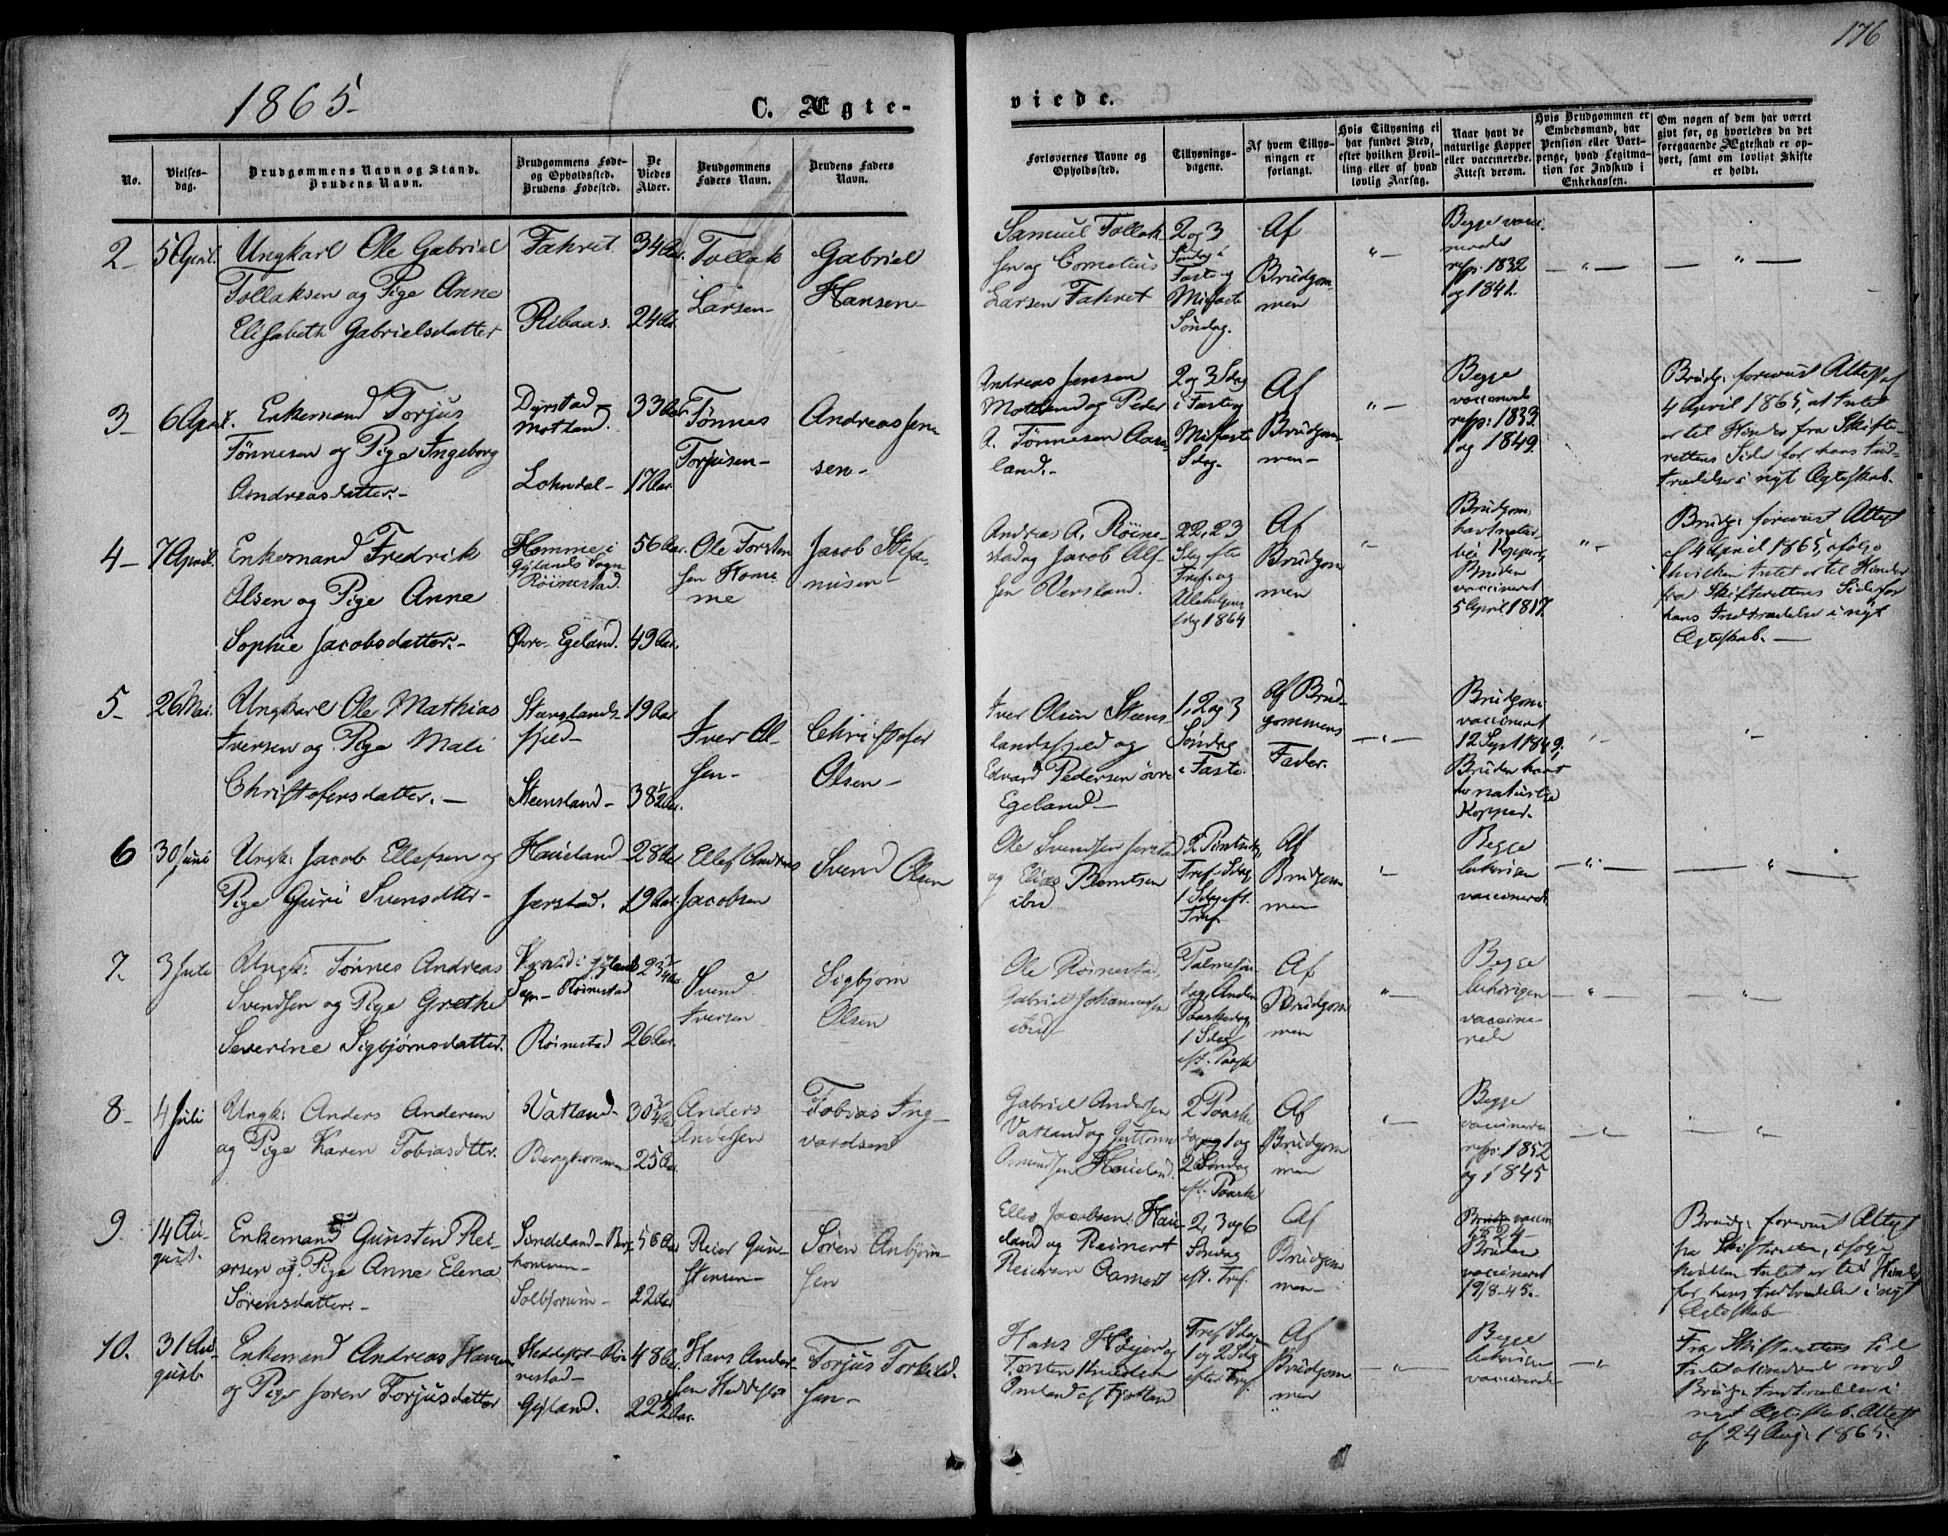 176
1865.
C. Ægte-
viede.
No.
Vielses-
dag.
Brudgommens Navn og Stand.
Brudens Navn.
Brudgommens Føde-
og Opholdssted.
Brudens Fødested.
De
Viedes
Alder.
Brudgommens
Faders Navn.
Brudens Faders
Navn.
Forlovernes Navne og
Opholdssted.
Tillysnings-
dagene.
Af hvem Tillys-
ningen er
forlangt.
Hvis Tillysning ei
har fundet Sted,
efter hvilken Bevil-
ling eller af hvad
lovlig Aarsag.
Naar havt de
naturlige Kopper
eller vaccinerede.
Attest derom.
Hvis Brudgommen er
Embedsmand, har
Pension eller Vart-
penge, hvad Legitima-
tion for Indskud i
Enkekassen.
Om nogen af dem har været
gift før, og hvorledes da det
foregaaende Ægteskab er op-
hørt, samt om lovligt Skifte
er holdt.
2
5 April.
Ungkarl Ole Gabriel
Tollaksen og Pige Anne
Elisabeth Gabrielsdatter
Fakret
Ribaas.
34 Aar.
24 Aar.
Tollak
Larsen
Gabriel
Hansen
Samuel Tollak
sen og Cornelius
Larsen Fakret
2 og 3
Søndag i
Faste og
Midfaste
Søndag.
Af
Brudgom-
men
Begge vacci-
nerede
resp: 1832
og 1841.
3
6 April.
Enkemand Torjus
Tønnesen og Pige Ingeborg
Andreasdatter.
Dyrstad
Motland.
Lohndal
33 Aar.
17 Aar.
Tønnes
Torjusen
Andreas Jen
sen
Andreas Jensen
Motland og Peder
A. Tønnesen Aas
land.
2 og 3 Sdag
i Faste og
Midfaste
Sdag.
Af
Brudgom-
men
Begge
vaccinerede
resp: 1833.
og 1849.
Brudg: foreviist Attest af
4 April 1865, at Intet
er til Hinder fra Skifte-
rettens Side for hans Ind-
trædelse i nyt Ægteskab.
4
7 April.
Enkemand Fredrik
Olsen og Pige Anne
Sophie Jacobsdatter.
Homme i
Gylands Sogn
Röinestad.
Øvre Egeland.
56 Aar.
49 Aar.
Ole Torsten
sen Hom
me
Jacob Stefa-
nusen
Andreas A. Röine-
stad og Jacob Ol-
sen Versland.
22, 23
Sdag efter
Tref. og
Allehelgens
sdag 1864
Af
Brudgom
men
Brudgom.
havt natur-
lige Kopper,
Bruden
vaccineret
5 April 1817.
Brudg: foreviist Attest
af 4 April 1865, ifølge
hvilken Intet er til Hinder
fra Skifterettens Side for
hans Indtrædelse i nyt
Ægteskab.
5
26 Mai.
Ungkarl Ole Mathias
Iversen og Pige Mali
Christofersdatter.
Steenslands-
fjeld
Steensland
19 Aar
38½ Aar.
Iver Ol-
sen
Christofer
Olsen
Iver Olsen Steens-
landsfjeld og
Edvard Pedersen övre
Egeland
1, 2 og 3
Søndag
i Faste.
af Brud-
gommens
Fader.
Brudgom
vaccineret
12 Sept 1849,
Bruden havt
de naturlige
Kopper.
6
30 Juni
Ungk: Jacob Ellefsen og
Pige Guri Svensdtter
Haueland
Jerstad.
28 Aar
19 Aar.
Ellef Andreas
Jacobsen
Svend Olsen
Ole Svendsen Jerstad
og Elias Berntsen
ibid
2 Pintsedag,
Tref. Sdag
1 Sdag eft.
Tref.
Af
Brudgom
men
Begge
beviislig
vaccinerede
7.
3 Juli
Ungk: Tønnes Andreas
Svendsen og Pige Grethe
Severine Sigbjørnsdatter.
i Gylands
Sogn Röinestad
Röinestad
26 Aar.
Svend
Iversen
Sigbjørn
Olsen
Ole Röinestad,
Gabriel Johannessen
ibid
Palmesøn-
dag, Anden
Paaskedag,
1 Sdag
eft. Paaske
Af
Brudgom
men
Begge
vaccine-
rede
8
4 Juli
Ungk: Anders Andersen
og Pige Karen Tobiasdtter.
Vatland
Berghommen
30¾ Aar
25 Aar.
Anders
Andersen
Tobias Ing-
vardsen
Gabriel Andersen
Vatland og Guttorm
Omundsen Haueland.
2 Paaske
dag og 1 og
2 Søndag
eft. Paaske
Af
Brudgom
men
Begge
vaccinerede
resp: 1852
og 1845
9.
14 Au-
gust.
Enkemand Gunsten Rei-
ersen og Pige Anne Elena
Sörensdatter.
Söndeland Berg-
hommen
Solbjorum
56 Aar
22 Aar
Reier Gun-
stensen
Sören Anbjørn-
sen
Ellev Jacobsen Haue-
land og Reinert
Reiersen Aamot
2, 3 og 6
Søndag
eft. Tref.
Af
Brudgom
men
Brudg. vaccin
1824
Bruden
vaccineret
19/8-45.
Brudg: foreviist Attest
fra Skifteretten, ifølge
hvilken Intet er til Hinder
for hans Indtrædelse i nyt
Ægteskab
10.
31 Au-
gust
Enkemand Andreas Hansen
og Pige Joren Torjusdatter
Heddefos Röi-
nestad
Gyland.
48 Aar.
22½ Aar.
Hans Ander-
sen Heddefos
Torjus Torkild-
sen
Hans Höjer og
Torsten Knudsen
Omland af Fjotland
Tref. Sdag
1 og 2 Sdag
efter Tref.
Af
Brudgom
men
Begge
vaccinerede
Fra Skifterettens Side
Intet at erindre mod
Brudg: Indtrædelse i
nyt Ægteskab. Attest
af 24 Aug: 1865.